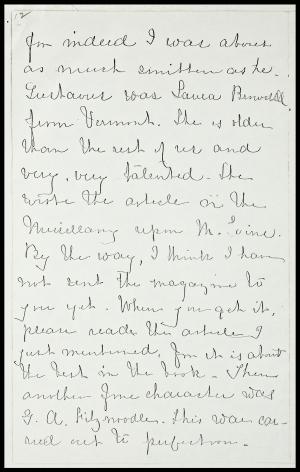 12
for indeed I was about
as much smitten as he.
Gustavus was Laura
from Vermont. She is older
than the rest of us and
very, very talented. She
wrote the article in the
Miscellany upon M.
By the way, I think I have
not sent the magazine to
you yet. When you get it,
please read the article I
just mentioned, for it is about
the best in the book. Then
another fine character was
G. A. Fitznoodle. This was car-
ried out to perfection.